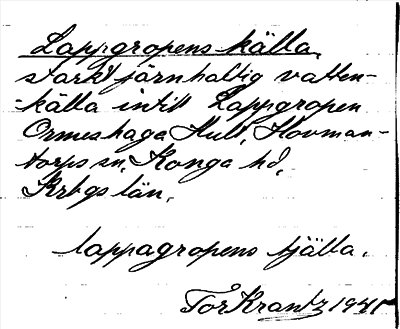 Lappgropens källa.
starkt järnhaltig vatten-
-källa intill Lappgropen
Ormeshaga Hult, Hovman-
torps sn, Konga hd,
Krbgs län.
lappagropens tjälla.
Tor Krantz 1941